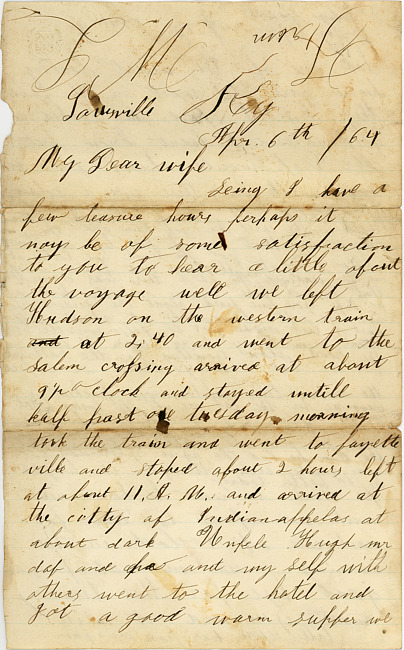 Louisville Ky
Apr. 6th /64
My Dear wife
Seing I have a
few leasure hours perhaps it
may be of some satisfraction
to you to hear a little about
the voyage well we left
Hudson on the western train
and at 2,40 and went to the
Salem crossing arrived at about
9 o clock and stayed untill
half past one tuesday morning
took the train and went to fayette
ville and stoped about 2 hours left
at about 11, A. M. and arrived at
the citty of Indianappelas at
about dark Unkele Hugh mr
and and my self with
others went to the hotel and
got a good warm supper we